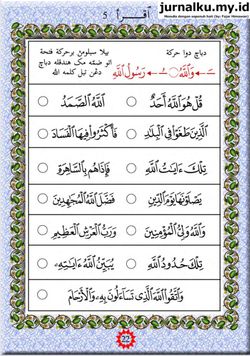 jurnalku.my.id
Menulis dengan sepenuh hati (by: Fajar Himawan)
اقرأ 5
دباچ دوا حركة
بيلا سبلومڽ برحركة فتحة
اتو ضمّه مک هندقله دباچ
دڠن تبل كلمه الله
وَاللَّهِ رَسُولُ اللَّهِ
قُلْ هُوَ اللَّهُ أَحَدٌ اللَّهُ الصَّمَدُ
الَّذِينَ طَغَوْا فِي الْبِلَادِ فَأَكْثَرُوا فِيهَا الْفَسَادَ
تِلْكَ ءَايَاتُ اللَّهِ فَإِذَا هُمْ بِالسَّاهِرَةِ
يَصْلَوْنَهَا يَوْمَ الدِّينِ فَضَّلَ اللَّهُ الْمُجَاهِدِينَ
وَاللَّهُ وَلِيُّ الْمُؤْمِنِينَ وَرَبُّ الْعَرْشِ الْعَظِيمِ
تِلْكَ حُدُودُ اللَّهِ يُبَيِّنُ اللَّهُ ءَايَاتِهِ
وَاتَّقُوا اللَّهَ الَّذِي تَسَاءَلُونَ بِهِ وَالْأَرْحَامَ
22